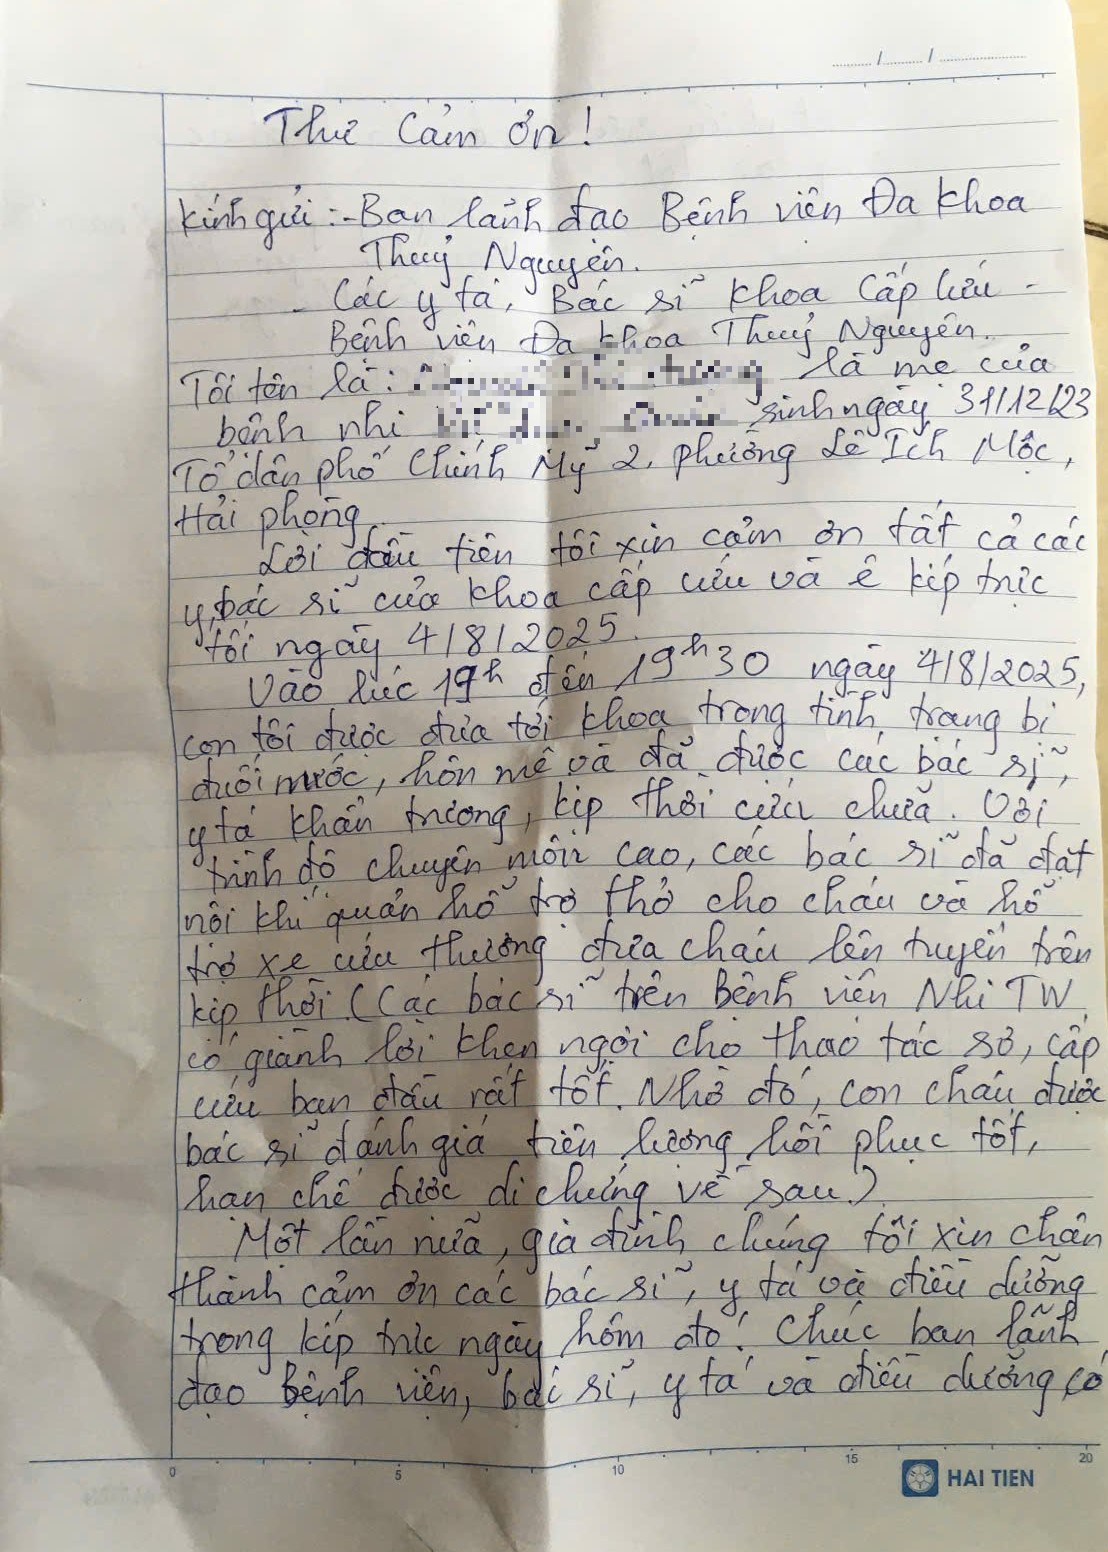 Thư Cảm ơn!
Kính gửi: - Ban lãnh đạo Bệnh viện Đa khoa
Thuỷ Nguyên.
- Các y tá, Bác sĩ khoa Cấp cứu -
Bệnh viện Đa khoa Thuỷ Nguyên.
Tôi tên là: là mẹ của
bệnh nhi sinh ngày 31/12/23
Tổ dân phố Chính Mỹ 2, phường Lê Ích Mộc,
Hải phòng
Lời đầu tiên tôi xin cảm ơn tất cả các
y, bác sĩ của khoa cấp cứu và ê kíp trực
tối ngày 4/8/2025.
Vào lúc 19h đến 19h30 ngày 4/8/2025,
con tôi được đưa tới khoa trong tình trạng bị
đuối nước, hôn mê và đã được các bác sĩ,
y tá khẩn trương, kịp thời cứu chữa. Với
trình độ chuyên môn cao, các bác sĩ đã đặt
nội khí quản hỗ trợ thở cho cháu và hỗ
trợ xe cứu thương đưa cháu lên tuyến trên
kịp thời (Các bác sĩ trên Bệnh viện Nhi TW
có giành lời khen ngợi cho thao tác sơ, cấp
cứu ban đầu rất tốt. Nhờ đó, con cháu được
bác sĩ đánh giá tiên lượng hồi phục tốt,
hạn chế được di chứng về sau.)
Một lần nữa, gia đình chúng tôi xin chân
thành cảm ơn các bác sĩ, y tá và điều dưỡng
trong kíp trực ngày hôm đó. Chúc ban lãnh
đạo Bệnh viện, bác sĩ, y tá và điều dưỡng có
0 5 10 15 20
HAI TIEN